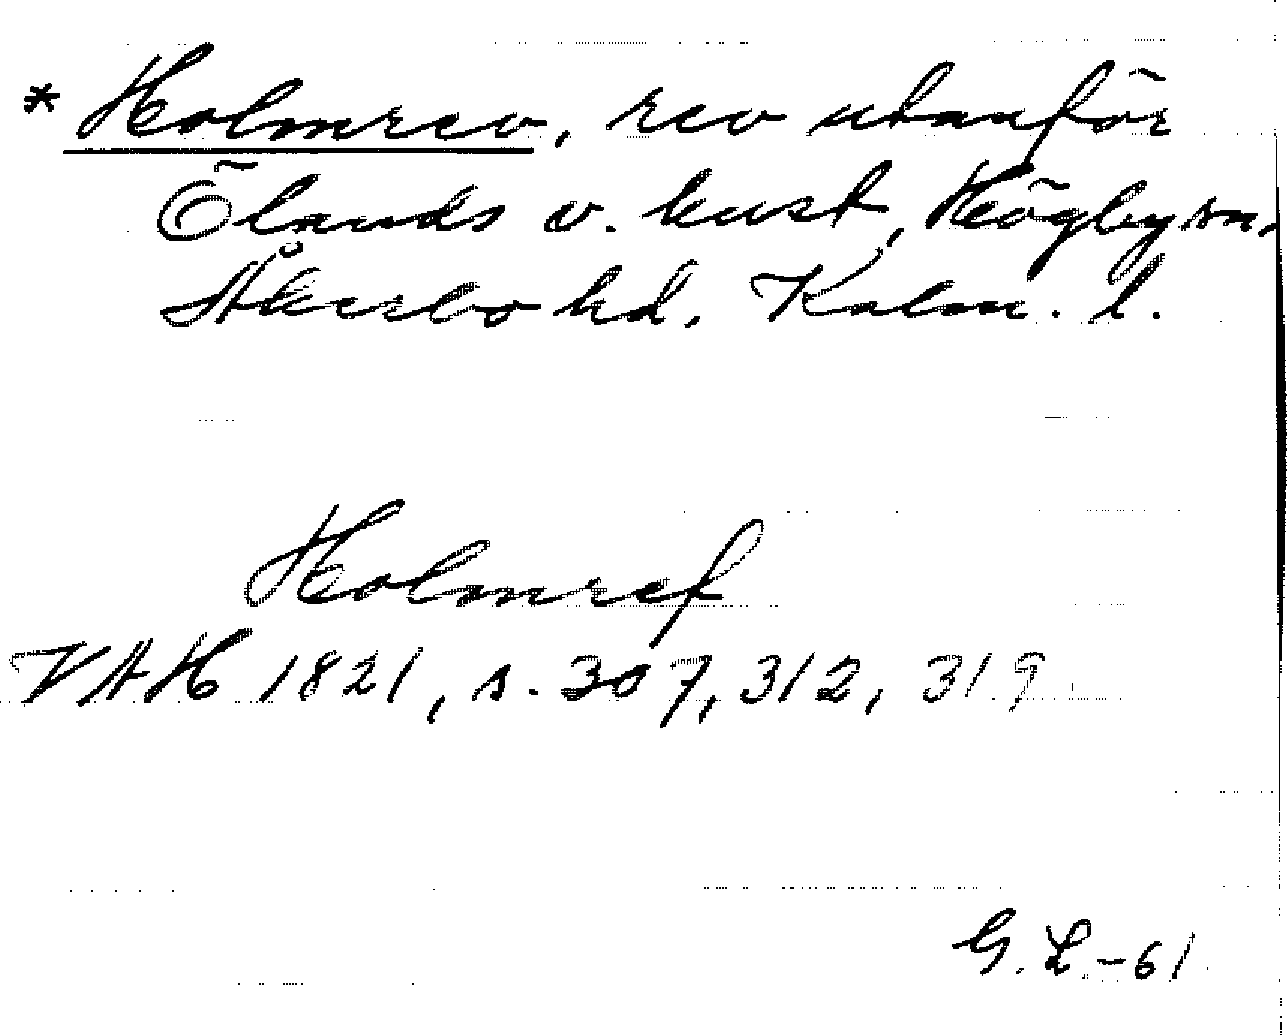 * Holmrev, rev utanför
Ölands v. kust, Högby sn,
Åkerbo hd. Kalm. l.
Holmref
VAH 1821, s. 307, 312, 319
G. L. -61